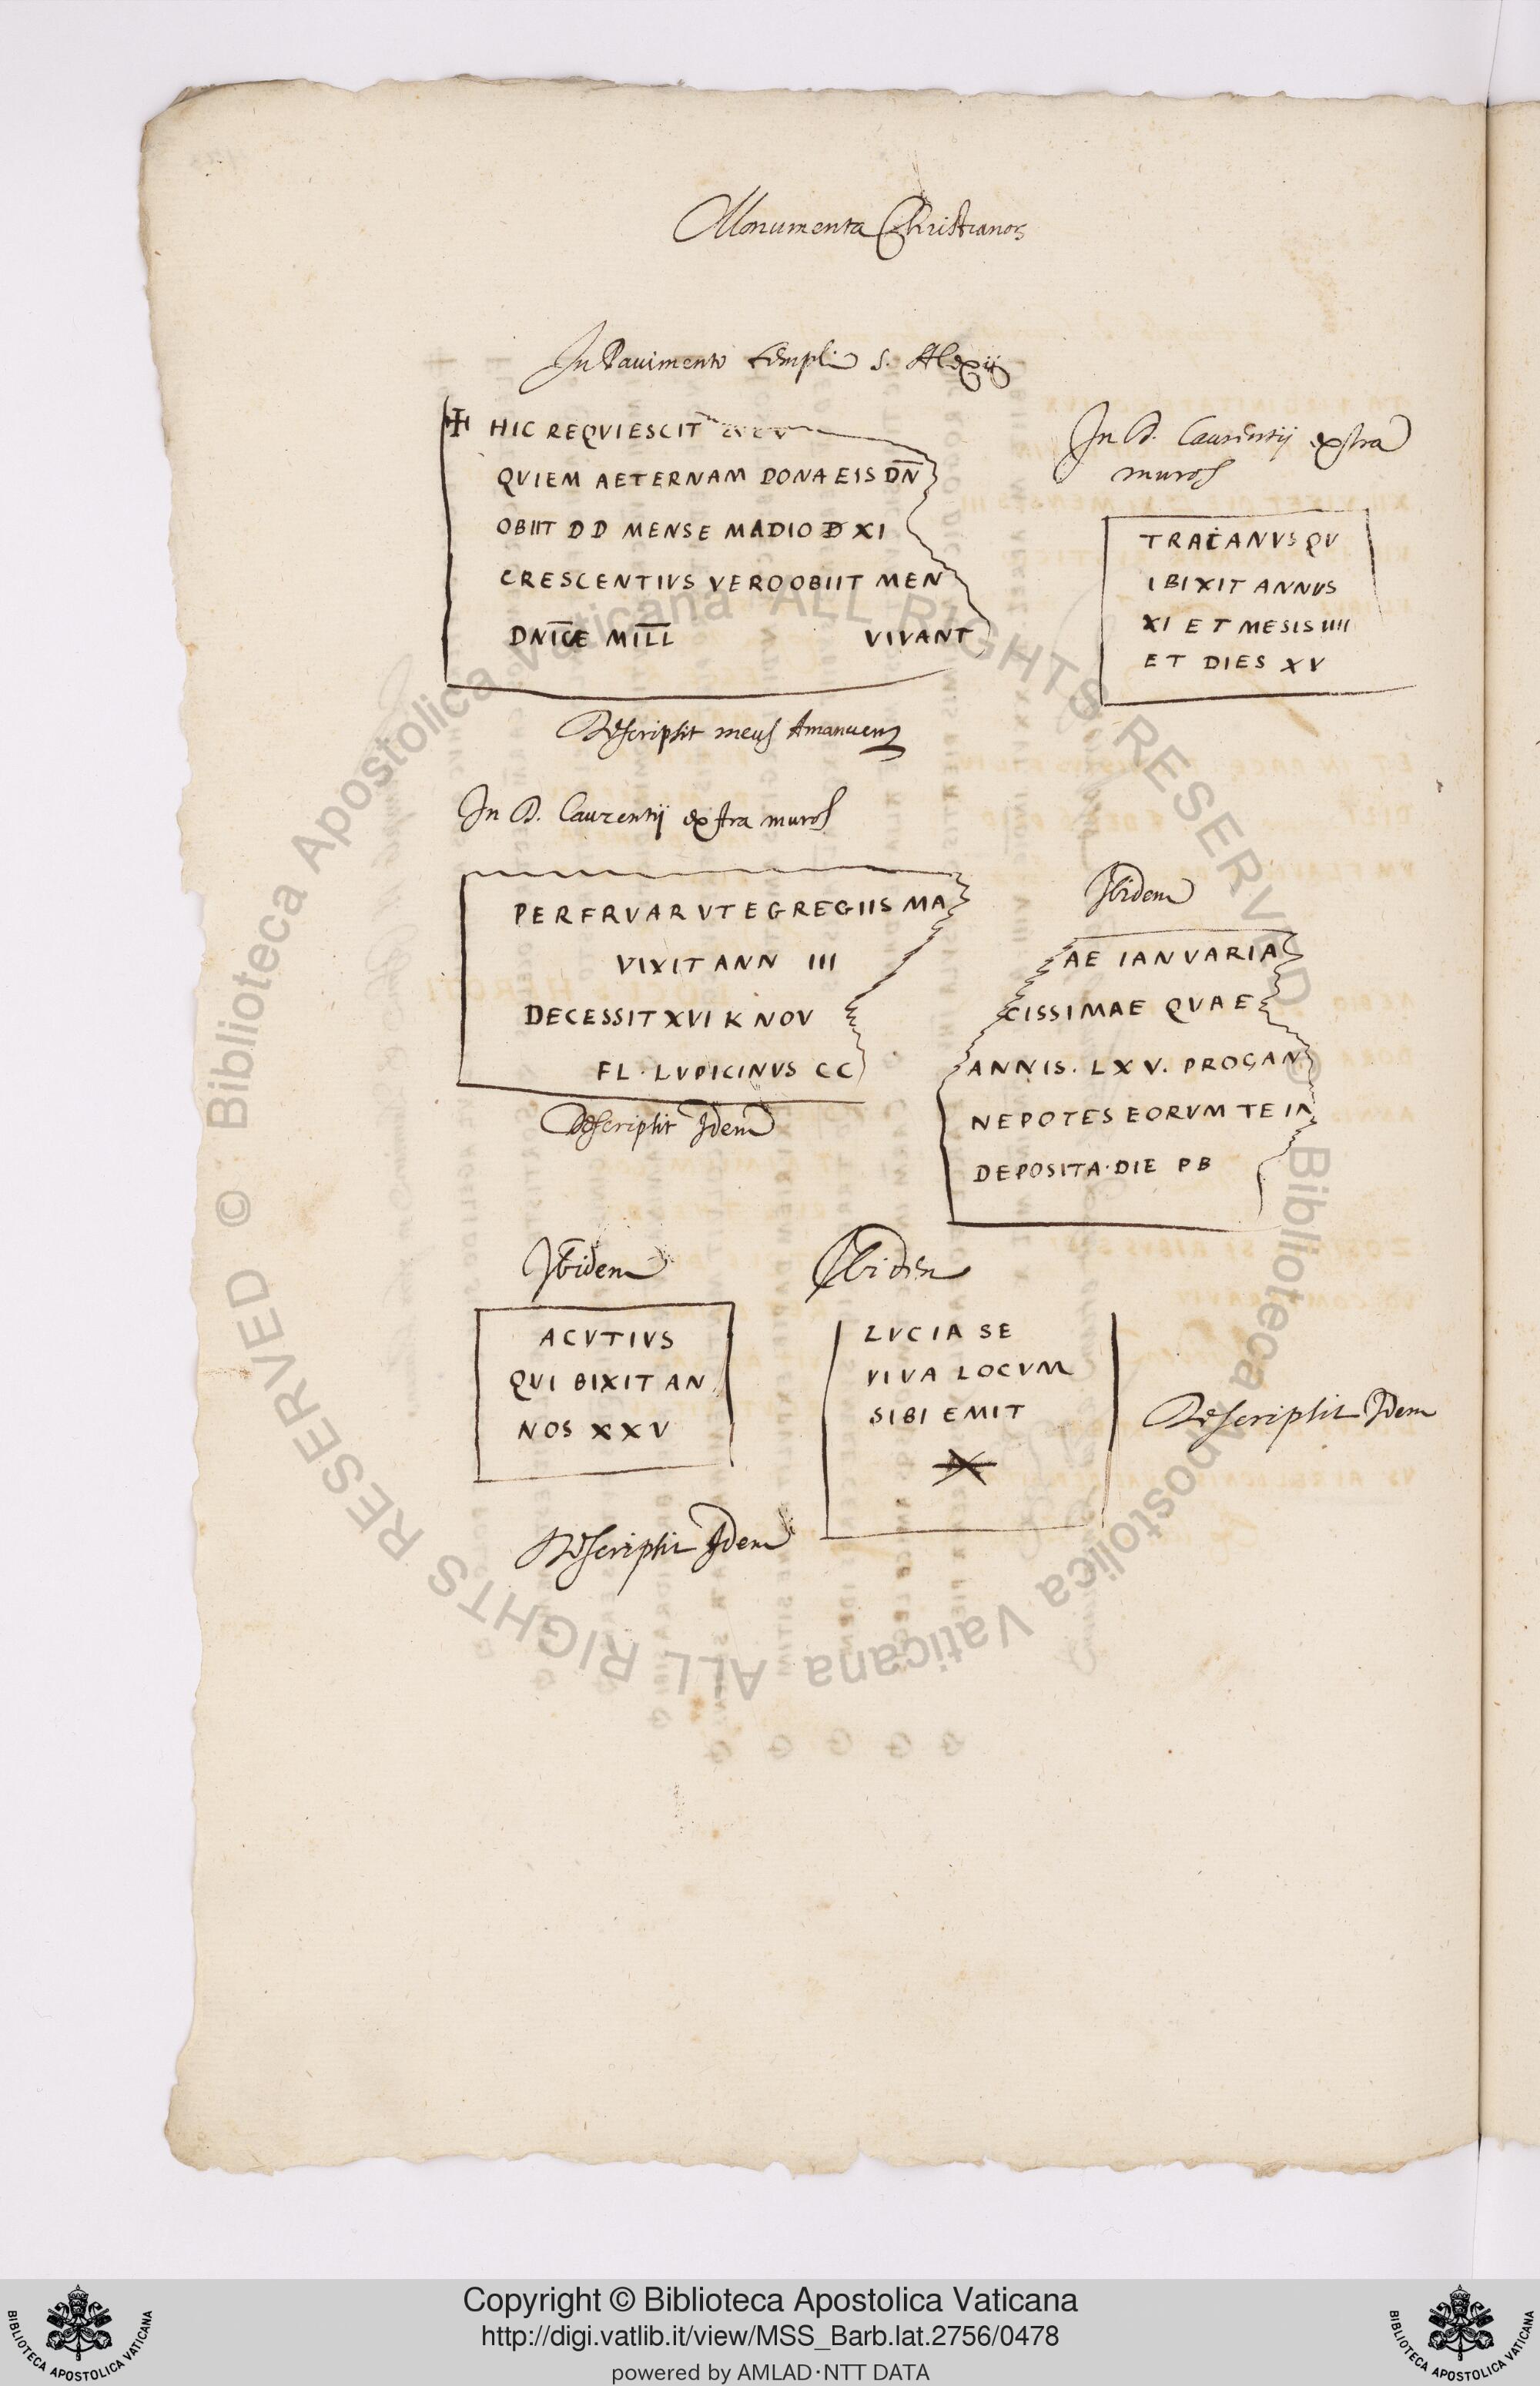 Monumenta Christianor
In Pavimento templi S. Alexii
✠ HIC REQVIESCIT
QVIEM AETERNAM DONA EIS DN̅
OBIIT DD MENSE MADIO D XI
CRESCENTIVS VERO OBIIT MEN
DNI̅CE MI̅L̅L VIVANT
Descripsit meus Amanuens
In D. Laurentij extra
muros
TRAIANVS QV
IBIXIT ANNVS
XI ET MESIS IIII
ET DIES XV
In D. Laurentij extra muros
PERFRVAR VT EGREGIIS MA
VIXIT ANN III
DECESSIT XVI K NOV
FL · LVPICINVS CC
Descripsit Idem
Ibidem
AE IANVARIA
CISSIMAE QVAE
ANNIS . LXV . PROGAN
NEPOTES EORVM TE IN
DEPOSITA · DIE PB
Ibidem
ACVTIVS
QVI BIXIT AN
NOS XXV
Descripsit Idem
Ibidem
LVCIA SE
VIVA LOCVM
SIBI EMIT
Descripsit Idem
© Biblioteca Apostolica Vaticana ALL RIGHTS RESERVED
© Biblioteca Apostolica Vaticana ALL RIGHTS RESERVED
Copyright © Biblioteca Apostolica Vaticana
http://digi.vatlib.it/view/MSS_Barb.lat.2756/0478
powered by AMLAD·NTT DATA
BIBLIOTECA APOSTOLICA VATICANA
BIBLIOTECA APOSTOLICA VATICANA